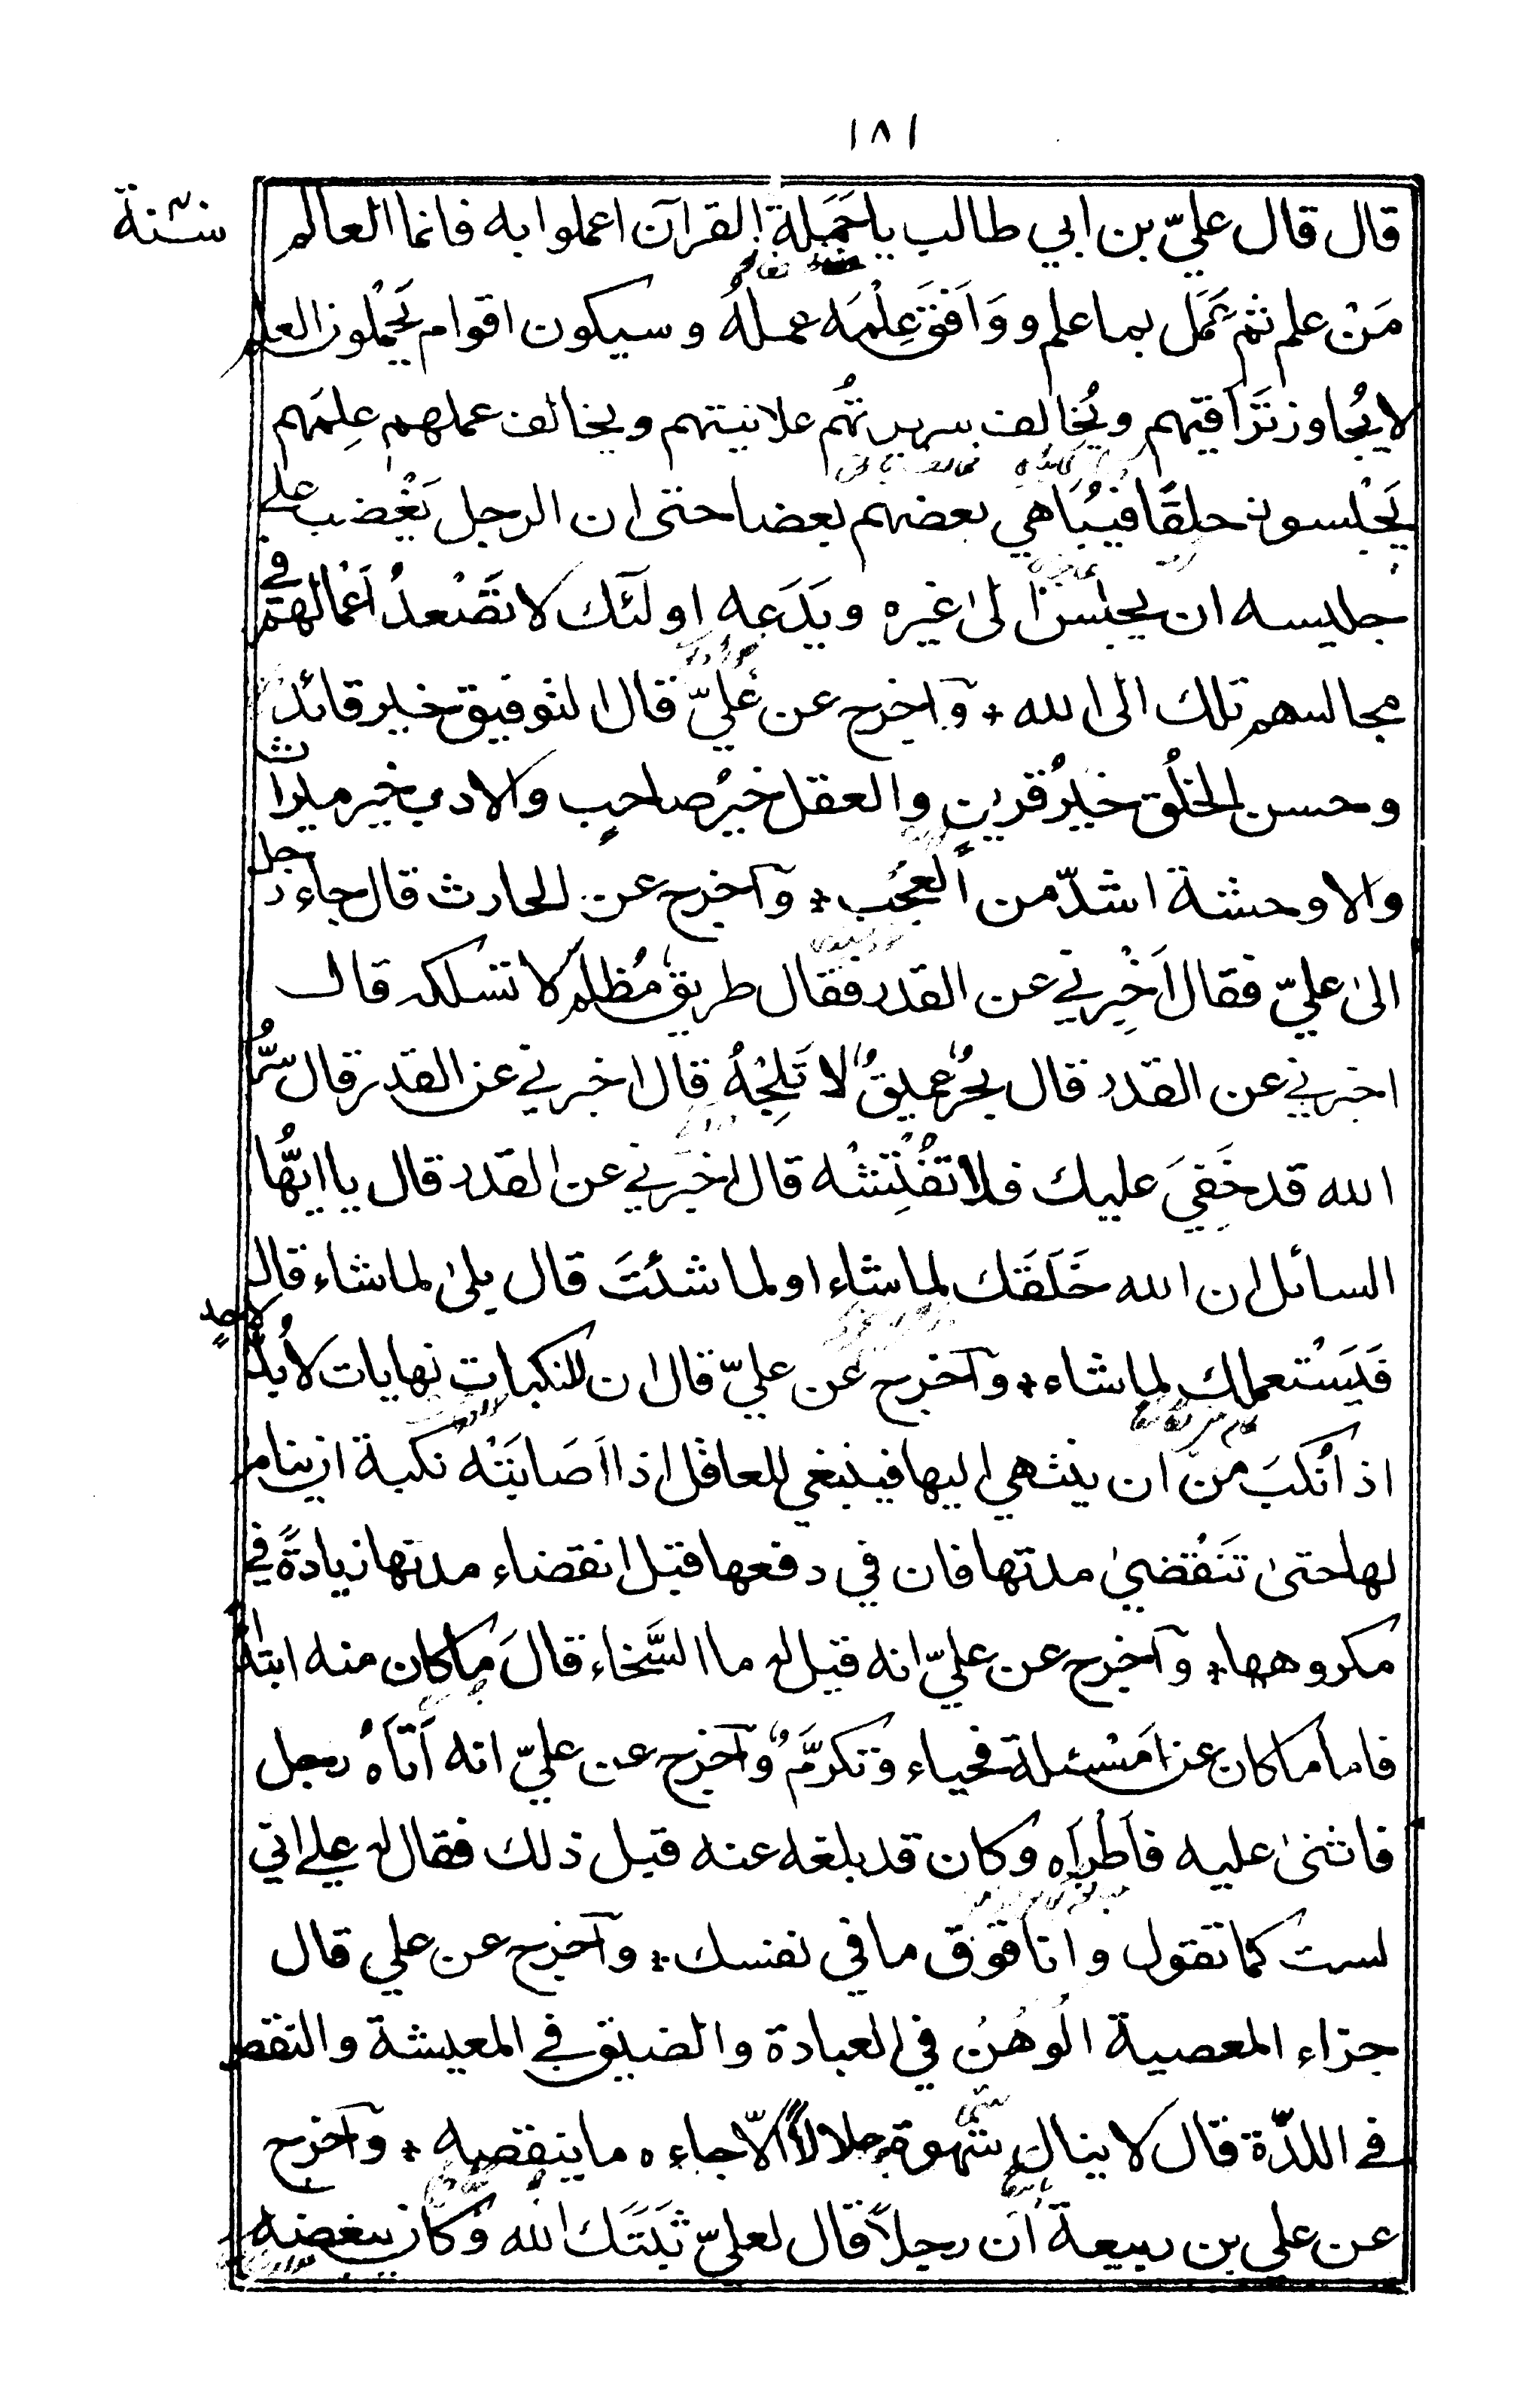 ١٨١
قال قال عليّ بن ابي طالب يا حَمَلة القرآن اعملوا به فانما العالم
مَنْ علم ثم عَمَل بما علم و وَافَقَ عِلْمَه عمله وسيكون اقوام يَحْملون العلم
لا يُجاوز تَرَاقيهم ويُخالف سريرتُهم علانيتهم ويخالف عملهم عِلمَهم
يَجْلسون حلقًا فيُبَاهي بعضهم بعضا حتى ان الرجل يَغْضب على
جليسه ان يجلس الى غيره ويَدَعه اولئك لا تَصْعدُ اَعْمالهم في
مجالسهم تلك الى الله * وآخرج عن عليّ قال التوفيق خير قائد
وحسن الخلُق خيرُ قرين والعقل خيرُ صاحب والادب خير ميراث
والا وحشة اشدّ من العجُب * وآخرج عن الحارث قال جاء رجل
الىٰ عليّ فقال اَخْبِرني عن القدر فقال طريق مُظلم لا تسلكه قال
اخبرني عن القدر قال بحرٌ عميقٌ لا تَلِجْهُ قال اخبرني عن القدر قال سرُّ
الله قد خَفِيَ عليك فلا تُفَتِّشْه قال اخبرني عن القدر قال يا ايهُّا
السائل ان الله خَلَقَك لما شاء او لما شئتَ قال بلىٰ لما شاء قال
فَيَسْتعملك لما شاء * وآخرج عن عليّ قال ان للنكبات نهايات لا بُدَّ لاحدٍ
اذا نُكبَ مِنْ ان ينتهي اليها فينبغي للعاقل اذا اَصَابَتْه نكبة ان ينام
لها حتىٰ تَنْقضيٰ مدتها فان في دفعها قبل انقضاء مدتها زيادةً في
مكروهها * وآخرج عن عليّ انه قيل له ما السَّخاء قالَ ما كان منه ابتداءً
فاما ما كان عن مَسْئلة فحياء وتكرّمٌ وآخرج عن عليّ انه اَتَاهُ رجل
فاثنىٰ عليه فاَطْرَاه وكان قد بلغه عنه قبل ذلك فقال له علي اني
لست كما تقول وانا فوق ما في نفسك * وآخرج عن علي قال
جزاء المعصية الوَهْنُ في العبادة والضيق في المعيشة والنقص
في اللذّة قال لا ينال شهوة حلالاً الاّ جاءه ما ينقصه * وآخرج
عن علي بن ربيعة ان رجلاً قال لعليّ ثَبَّتَك الله وكان يبغضه